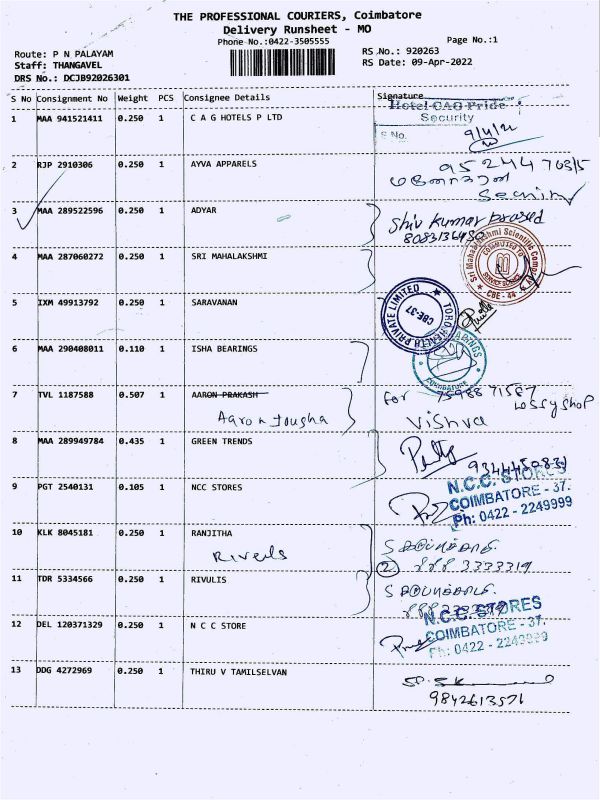 THE PROFESSIONAL COURIERS, Coimbatore
Delivery Runsheet - MO
Phone No.:0422-3505555
Page No.:1
Route: P N PALAYAM
RS No.: 920263
Staff: THANGAVEL
RS Date: 09-Apr-2022
DRS No.: DCJB92026301
S No Consignment No Weight PCS Consignee Details Signature
1 MAA 941521411 0.250 1 C A G HOTELS P LTD
Hotel CAG Pride
Security
S No.
9/4/22
2 RJP 2910306 0.250 1 AYVA APPARELS
Security
3 MAA 289522596 0.250 1 ADYAR
Shiv Kumar Prasad
4 MAA 287060272 0.250 1 SRI MAHALAKSHMI
Sri Mahalakshmi Scientific Company
CBE - 44
5 IXM 49913792 0.250 1 SARAVANAN
PRIVATE LIMITED
CBE-37
6 MAA 290408011 0.110 1 ISHA BEARINGS
Coimbatore
7 TVL 1187588 0.507 1 AARON PRAKASH
Aaron Jousha
For
Vishva
8 MAA 289949784 0.435 1 GREEN TRENDS
9 PGT 2540131 0.105 1 NCC STORES
N.C.C. STORES
COIMBATORE - 37.
Ph: 0422 - 2249999
10 KLK 8045181 0.250 1 RANJITHA
3333319
11 TDR 5334566 0.250 1 RIVULIS
12 DEL 120371329 0.250 1 N C C STORE
N.C.C. STORES
COIMBATORE - 37.
Ph: 0422 - 2249999
13 DDG 4272969 0.250 1 THIRU V TAMILSELVAN
9842613571